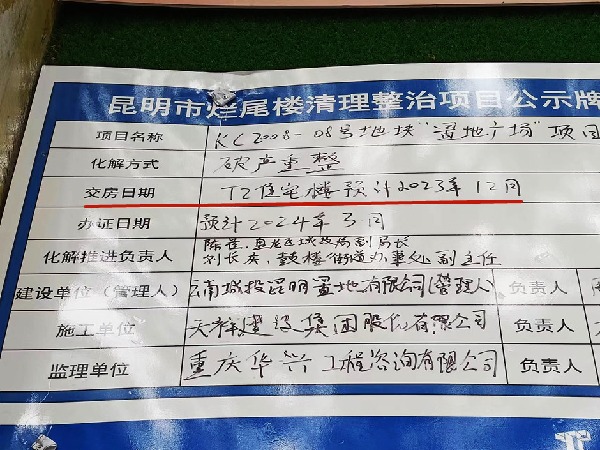 昆明市烂尾楼清理整治项目公示牌
项目名称 KC2008-08号地块"置地广场"项目
化解方式 破产重整
交房日期 T2住宅楼预计2023年12月
办证日期 预计2024年3月
化解推进负责人 副局长
刘长 鼓楼街道办事处副主任
建设单位(管理人) 云南城投昆明置地有限公司(管理人) 负责人
施工单位 建设集团股份有限公司 负责人
监理单位 重庆华兴工程咨询有限公司 负责人